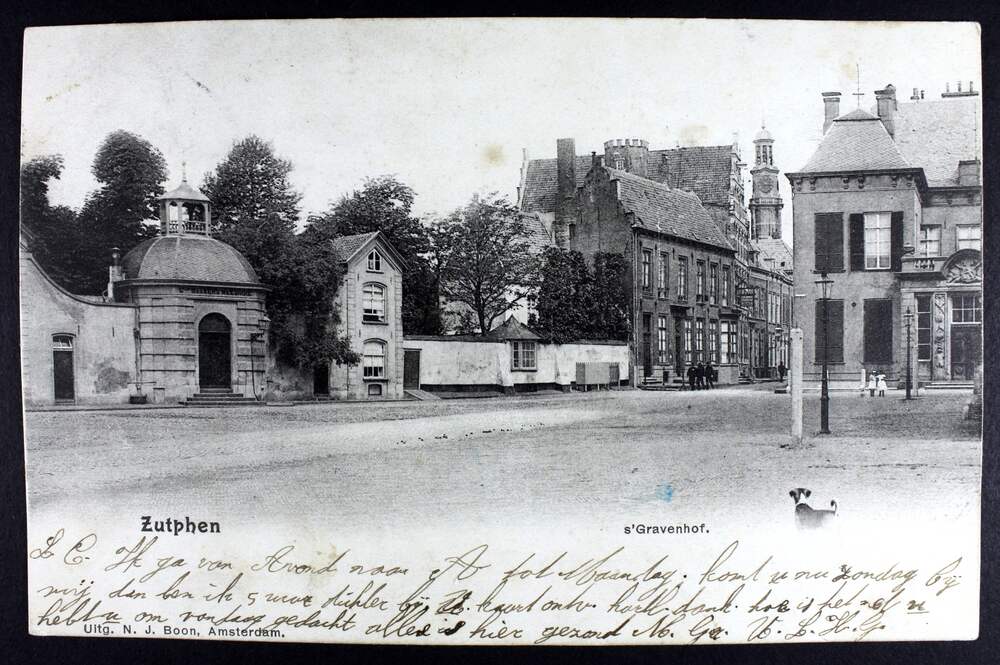 Zutphen
s'Gravenhof.
L C. Ik ga van Avond naar A tot Maandag. komt u nu Zondag bij
mij, dan ben ik 5 uur dichter bij kaart ontv. hart. dank hoe is het met u
hebt u om vandaag gedacht alles is hier gezond M. Gr. V. L. H. G.
Uitg. N. J. Boon, Amsterdam.